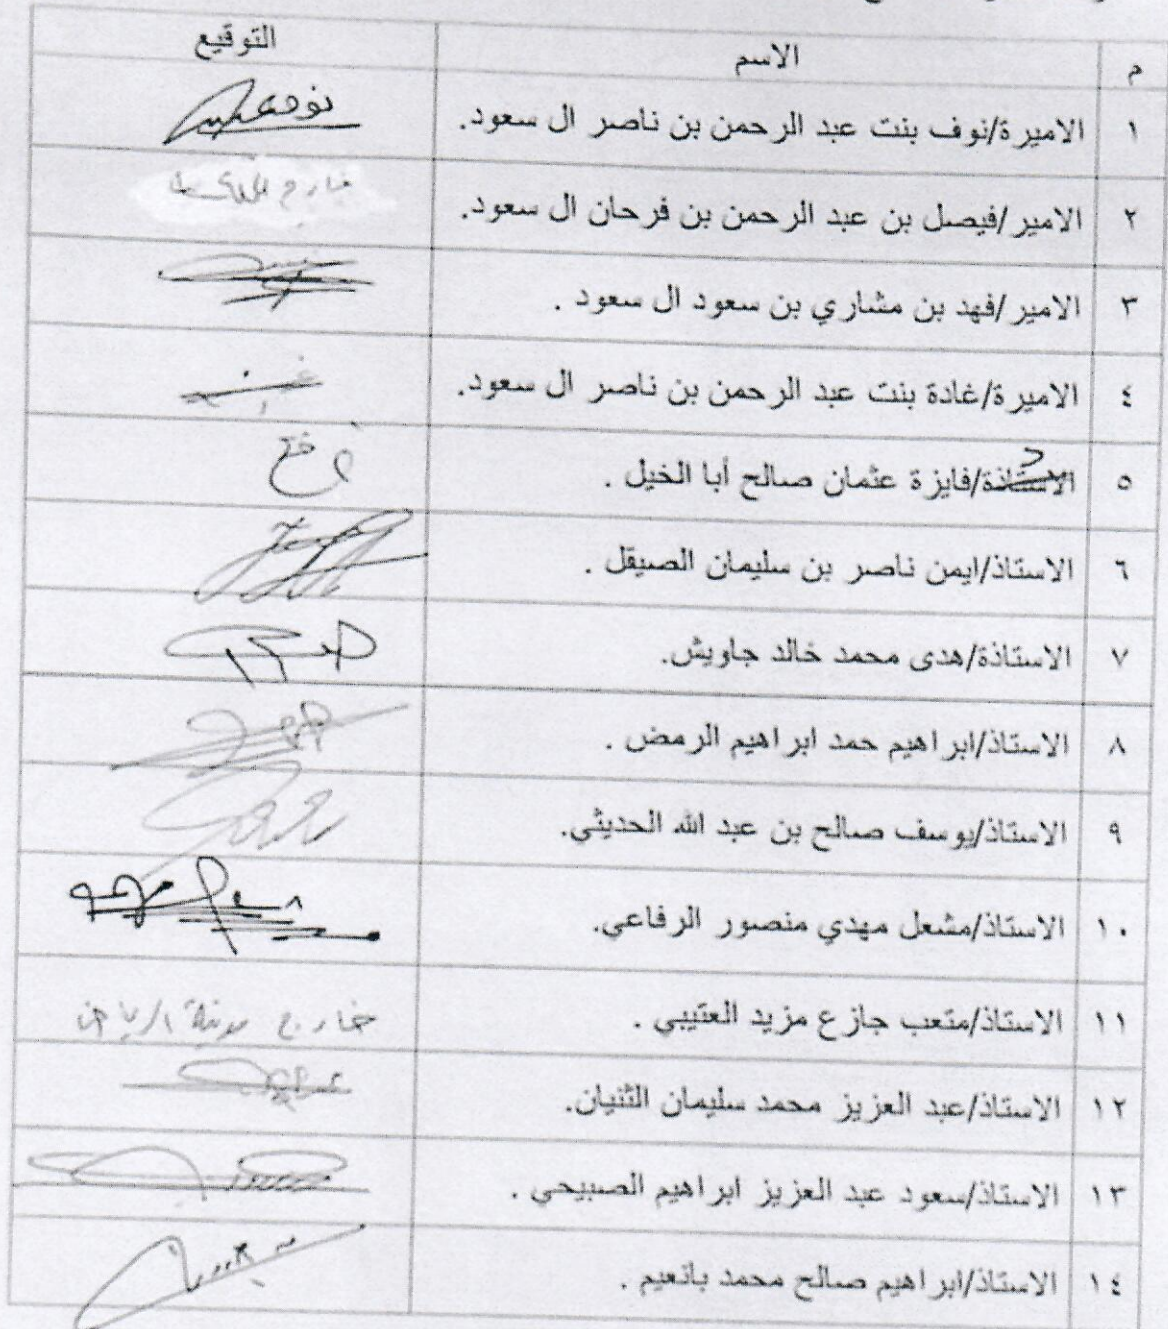 م الاسم التوقيع
١ الاميرة/نوف بنت عبد الرحمن بن ناصر ال سعود.
٢ الامير/فيصل بن عبد الرحمن بن فرحان ال سعود. خارج المملكة
٣ الامير/فهد بن مشاري بن سعود ال سعود .
٤ الاميرة/غادة بنت عبد الرحمن بن ناصر ال سعود.
٥ الاستاذة/فايزة عثمان صالح أبا الخيل .
٦ الاستاذ/ايمن ناصر بن سليمان الصيقل .
٧ الاستاذة/هدى محمد خالد جاويش.
٨ الاستاذ/ابراهيم حمد ابراهيم الرمض .
٩ الاستاذ/يوسف صالح بن عبد الله الحديثي.
١٠ الاستاذ/مشعل مهدي منصور الرفاعي.
١١ الاستاذ/متعب جازع مزيد العتيبي . خارج مدينة الرياض
١٢ الاستاذ/عبد العزيز محمد سليمان الثنيان.
١٣ الاستاذ/سعود عبد العزيز ابراهيم الصبيحي .
١٤ الاستاذ/ابراهيم صالح محمد بانعيم .